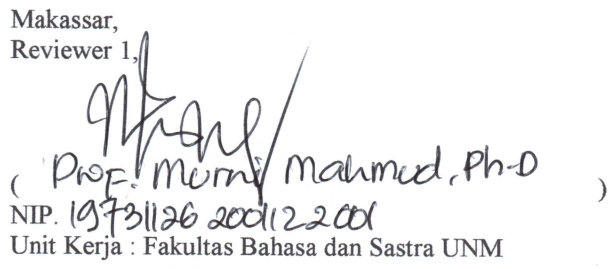 Makassar,
Reviewer 1,
( Prof. Murni Mahmud, Ph.D )
NIP. 19731126 200112 2 001
Unit Kerja : Fakultas Bahasa dan Sastra UNM